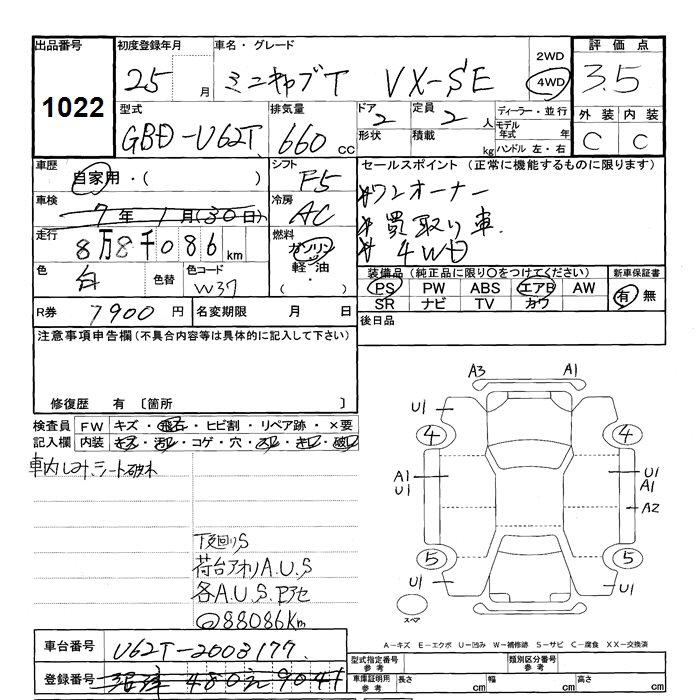 出品番号 初度登録年月 車名・グレード 2WD 評価点
1022 25 月 ミニキャブT VX-SE 4WD 3.5
型式 排気量 ドア 定員 ディーラー・並行 外装 内装
GBD-U62T 660 CC 2 2 人 モデル年式 年 C C
形状 積載 kg ハンドル 左・右
車歴 自家用・( ) シフト F5 セールスポイント (正常に機能するものに限ります)
車検 7年1月(30日) 冷房 AC
*ワンオーナー
*買取り車
*4WD
走行 8万8千086km 燃料 ガソリン 軽油 ( ・ )
色 白 色替 色コード W37
装備品(純品品に限り○をつけてください) 新車保証書
PS PW ABS エアB AW 有 無
SR ナビ TV カワ
R券 7900円 名変期限 月 日 後日品
注意事項申告欄(不具合内容等は具体的に記入して下さい)
修復歴 有 〔箇所 〕
検査員 FW キズ・飛石・ヒビ割・リペア跡・×要
記入欄 内装 キズ・汚レ・コゲ・穴・スレ・キレ・破レ
車内しみ、シート破れ
下廻りS
荷台アオリA.U.S
各A.U.S.Pアセ
88086Km
A3 A1
U1 U1
4 4
A1 U1
U1 A1
A2
5 5
U1 U1
スペア
A-キズ E-エクボ U-凹み W-補修跡 S-サビ C-腐食 XX-交換済
車台番号 U62T-2003177
登録番号 沼津 480 9041
型式指定番号 参考 類別区分番号 参考
車庫証明用 参考 長さ cm 幅 cm 高さ cm